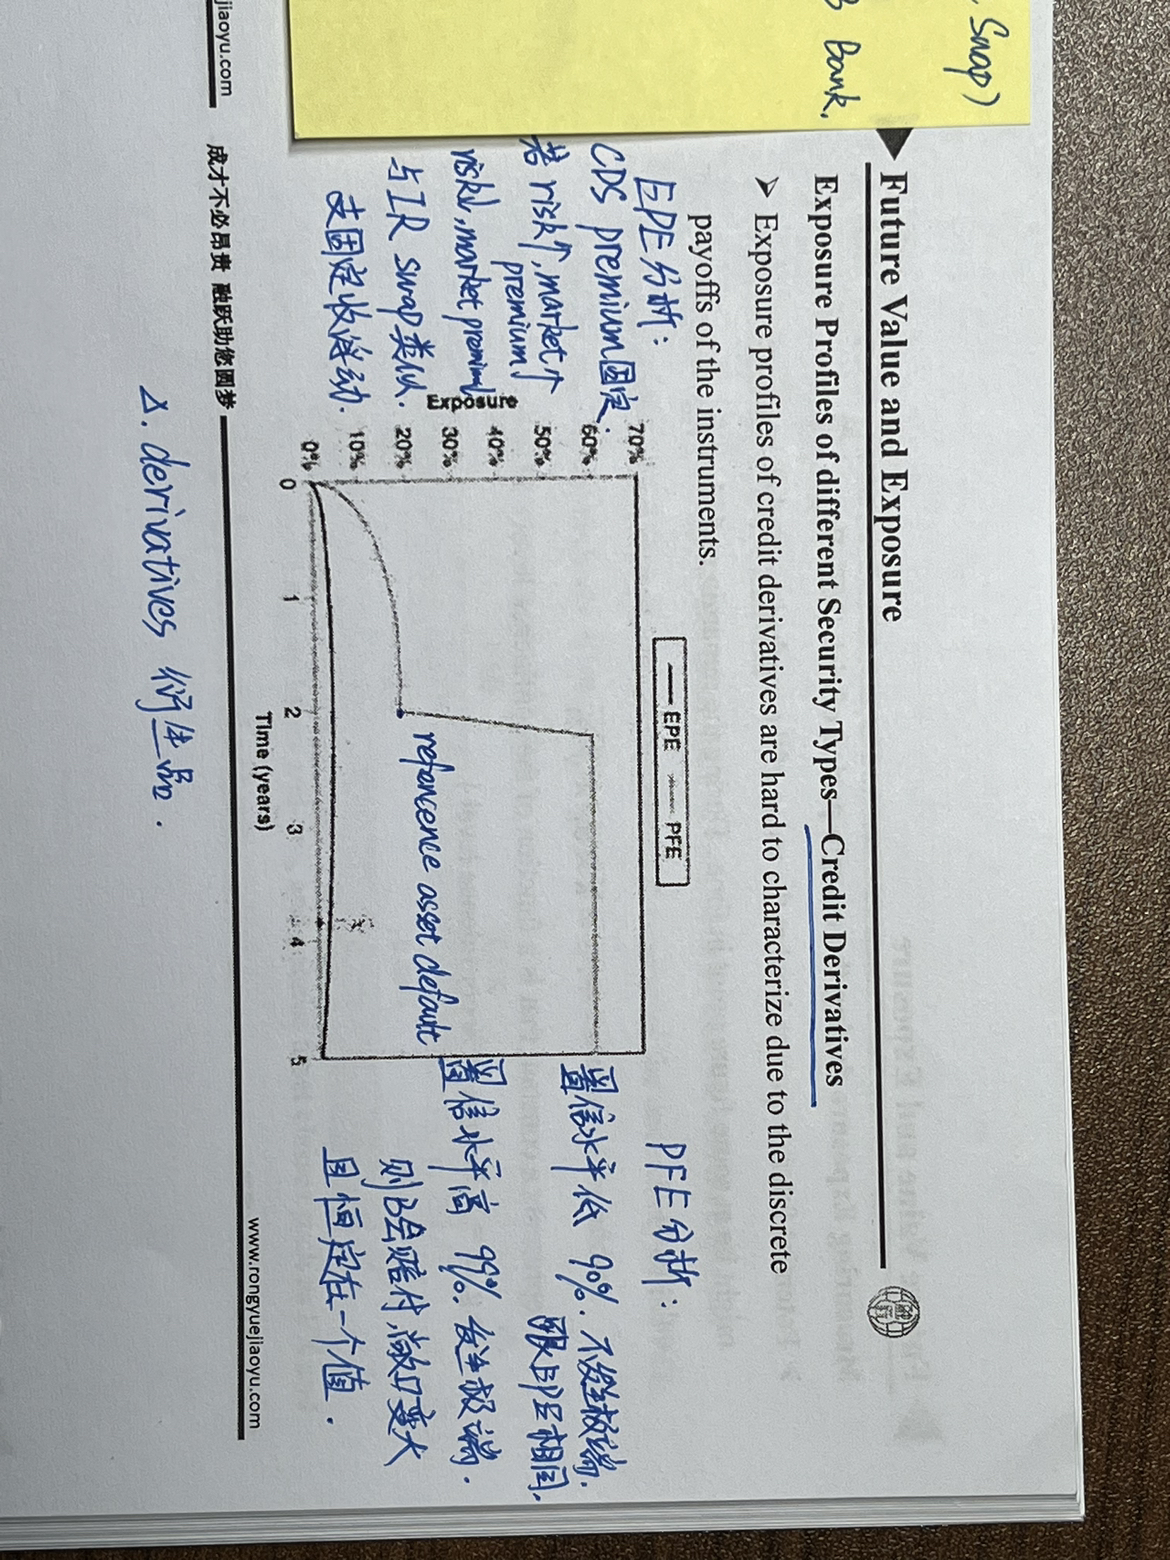 Swap)
B Bank,
Future Value and Exposure
Exposure Profiles of different Security Types—Credit Derivatives
➤ Exposure profiles of credit derivatives are hard to characterize due to the discrete
payoffs of the instruments.
EPE分析：
CDS premium固定.
若risk↑, market↑
premium
risk↓, market premium↓
与IR swap类似.
支固定收浮动.
EPE PFE
Exposure
70%
60%
50%
40%
30%
20%
10%
0%
0 1 2 3 4 5
Time (years)
refoncence asset default
PFE分析：
置信水平低 90%. 不发生极端.
跟EPE相同.
置信水平高 99%. 发生极端.
则B会赔付,敞口变大
且恒定在一个值.
jiaoyu.com
成才不必昂贵 融跃助您圆梦
www.rongyuejiaoyu.com
△. derivatives 衍生品.